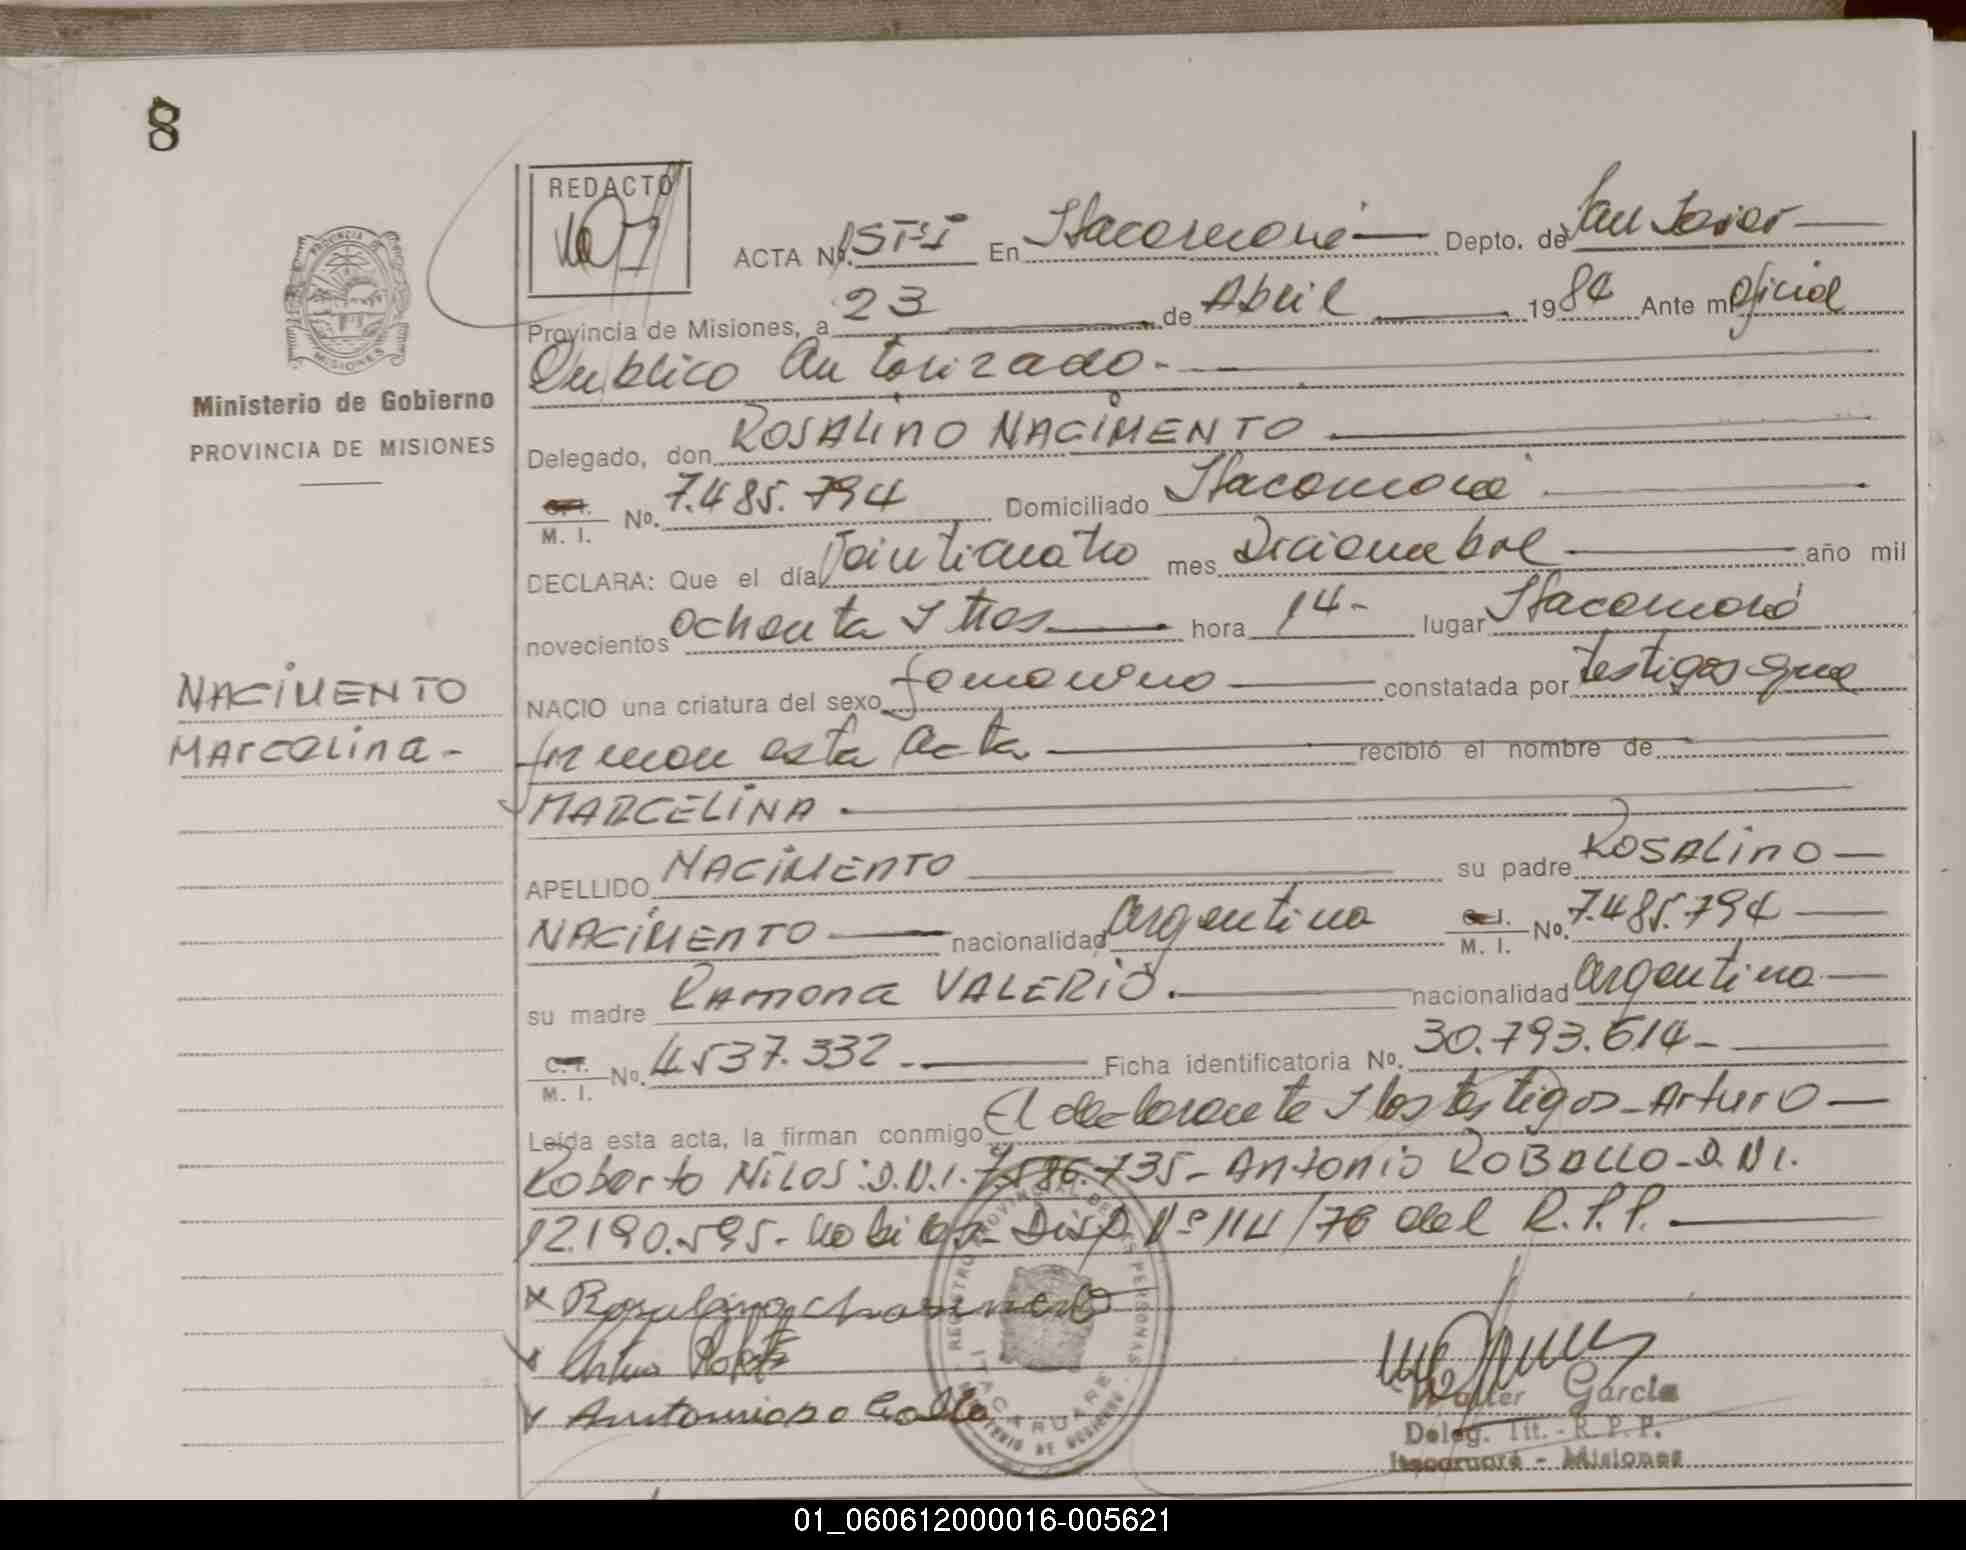 8
REDACTO
ACTA Nº. En Itacaruaré Depto. de San Javier
Provincia de Misiones, a 23 de Abril 1984 Ante mi Oficial
Publico Autorizado.-
Delegado, don ROSALINO NACIMENTO
C. I. M. I. No. 7.485.794 Domiciliado Itacaruaré
DECLARA: Que el día Veinticuatro mes Diciembre año mil
novecientos ochenta y tres hora 14- lugar Itacaruaré
NACIO una criatura del sexo femenino constatada por testigos que
firman esta Acta recibió el nombre de
MARCELINA.
APELLIDO NACIMENTO su padre ROSALINO
NACIMENTO nacionalidad argentina C. I. M. I. No. 7.485.794
su madre Ramona VALERIO. nacionalidad argentina.
C. I. M. I. No. 4.537.332.- Ficha identificatoria No. 30.793.614-
Leída esta acta, la firman conmigo El declarante y los testigos-Arturo
Roberto NILOS: D.N.I. 7.586.735- Antonio ROBALLO-D.N.I.
12.190.595- Disp. Nº 114/78 del R.P.P.
PROVINCIA DE MISIONES
Ministerio de Gobierno
PROVINCIA DE MISIONES
NACIMENTO
Marcelina-
REGISTRO PROVINCIAL DE LAS PERSONAS
ITACARUARE
MINISTERIO DE GOBIERNO
Walter García
Deleg. Tit. - R. P. P.
Itacaruaré - Misiones
01_060612000016-005621